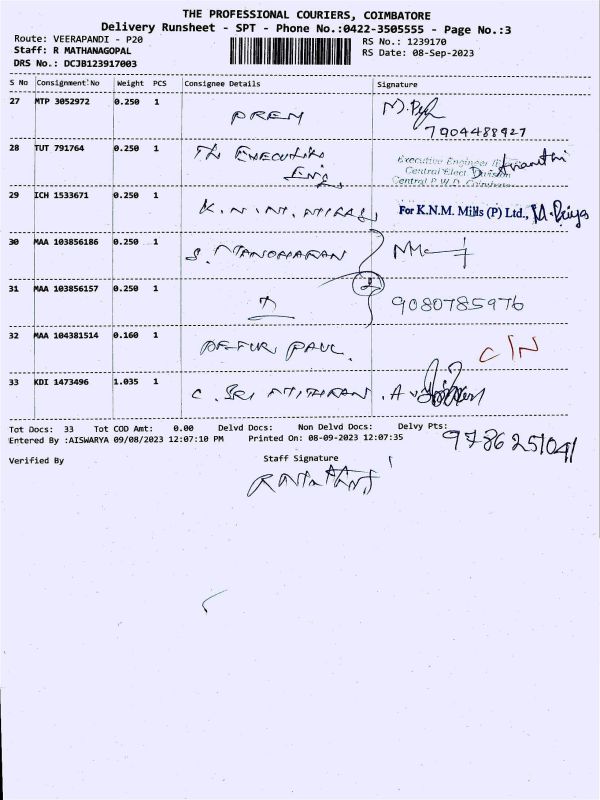 THE PROFESSIONAL COURIERS, COIMBATORE
Delivery Runsheet - SPT - Phone No.:0422-3505555 - Page No.:3
Route: VEERAPANDI - P20
RS No.: 1239170
Staff: R MATHANAGOPAL
RS Date: 08-Sep-2023
DRS No.: DCJB123917003
S No Consignment No Weight PCS Consignee Details Signature
27 MTP 3052972 0.250 1 PREM
7904488927
28 TUT 791764 0.250 1 The EXECUTIVE
Eng.
Executive Engineer
Central Elect Division
Central P.W.D. Coimbatore
29 ICH 1533671 0.250 1 K.N.M. MILLS For K.N.M. Mills (P) Ltd., M. Priya
30 MAA 103856186 0.250 1 S. MANOHARAN
31 MAA 103856157 0.250 1 2 9080785976
32 MAA 104381514 0.160 1 PAUL. C/N
33 KDI 1473496 1.035 1 C. SRI NITHIRAN.
Tot Docs: 33 Tot COD Amt: 0.00 Delvd Docs: Non Delvd Docs: Delvy Pts:
9786251041
Entered By :AISWARYA 09/08/2023 12:07:10 PM Printed On: 08-09-2023 12:07:35
Verified By Staff Signature